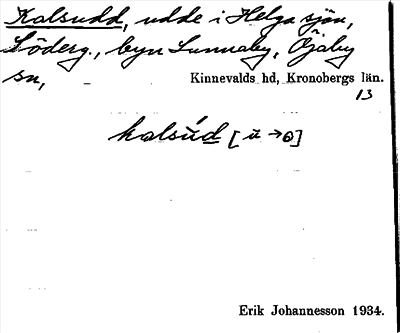 Kalsudd, udde i Helga sjön,
Söderg., byn Lunnaby, Öjaby
sn, Kinnevalds hd, Kronobergs län.
13
kalsúd [ü → ɵ]
Erik Johannesson 1934.